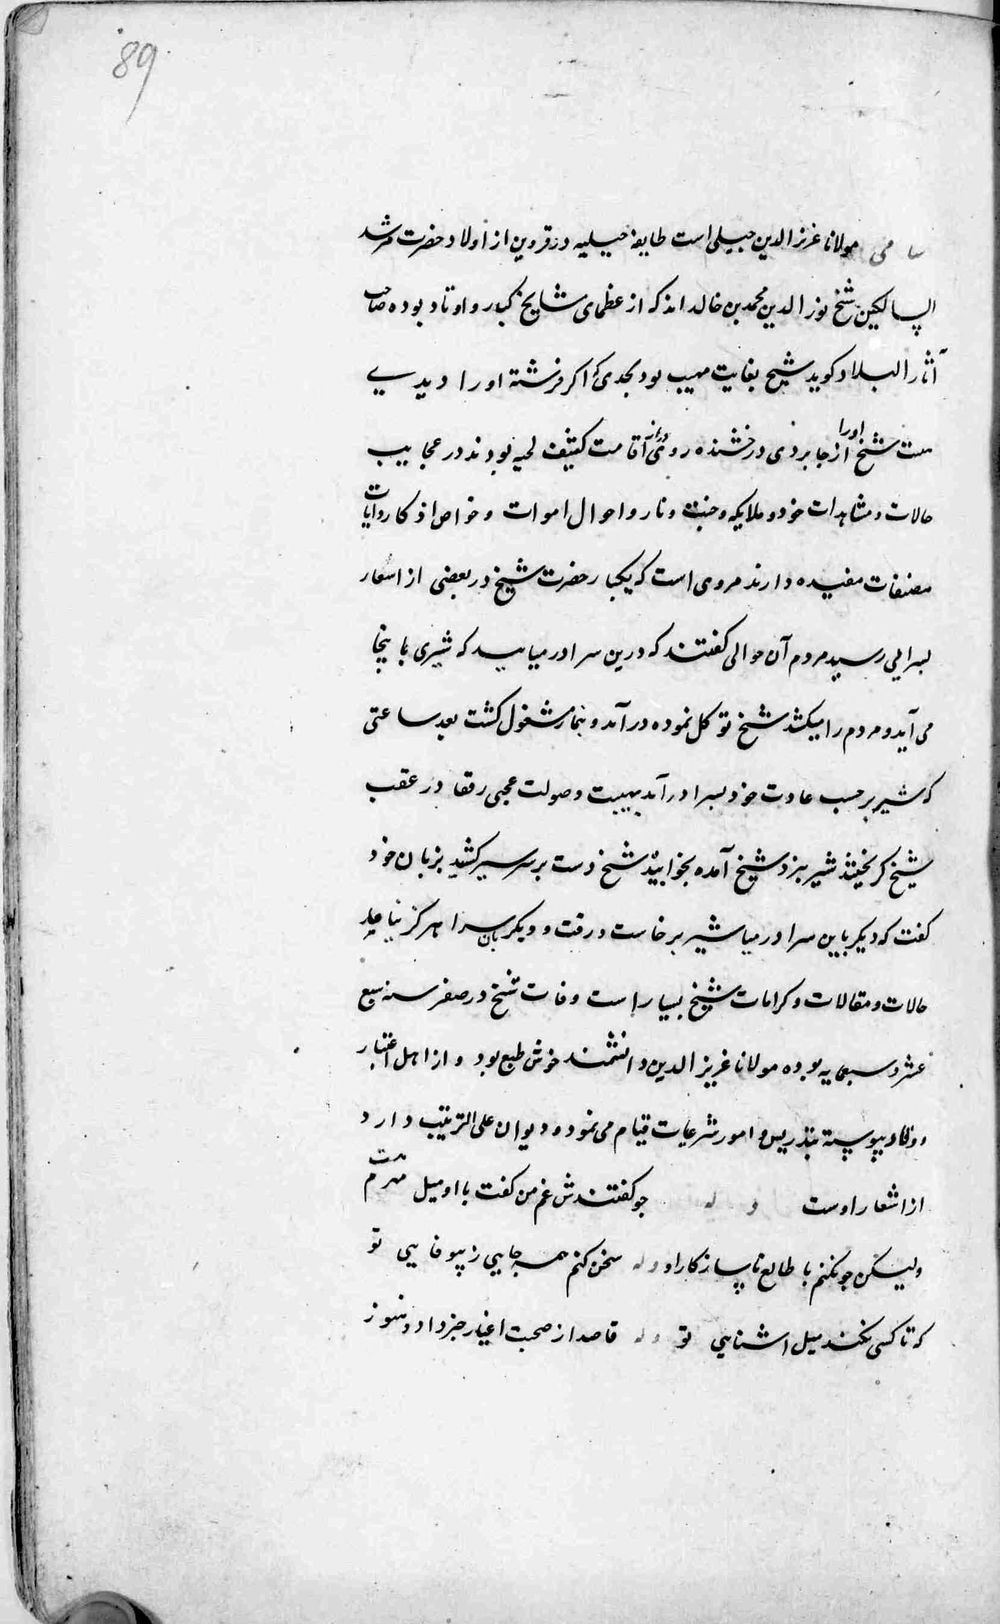 89
سامی مولانا عزیز الدین جیلی است طایفه جیلیه در قزوین از اولاد حضرت مرشد
السالکین شیخ نور الدین محمد بن خالد اند که از عظمای مشایخ کبار و اوتاد بوده صاحب
آثار البلاد کوید شیخ بغایت مهیب بود بحدی که اکر فرشته او را دیدے
شیخ او را از جا بردی درخشنده روی دراز قامت کثیف لحیه بودند در عجایب
حالات و مشاهدات خود و ملایکه و جنت و نار و احوال اموات و خواص اذکار و ایات
مصنفات مفیده دارند مروی است که یکبار حضرت شیخ در بعضی از اسفار
بسرایی رسید مردم آن حوالی کفتند که درین سرا در میایید که شیری باینجا
می آید و مردم را میکشد شیخ توکل نموده در آمد و بنماز مشغول کشت بعد ساعتی
که شیر بر حسب عادت خود بسرا در آمد بهیبت و صولت عجبی رفقا در عقب
شیخ کریختند شیر بنزد شیخ آمده بخوابید شیخ دست بر سر شیر کشید بزبان خود
کفت که دیکر باین سرا در میا شیر برخاست و رفت و دیکر بان سرا هرکز نیامد
حالات و مقالات و کرامات شیخ بسیار است وفات شیخ در صفر سنه سبع
عشر و سبعمایه بوده مولانا عزیز الدین دانشمند خوش طبع بود و از اهل اعتبار
پیوسته بتدریس و امور شرعیات قیام می نمود و دیوان علی الترتیب دارد
از اشعار اوست وله چو کفتندش غم من کفت با او میل
ولیکن چو نکنم با طالع ناسازکار او وله سخن کنم همه جایی ز بیوفایی تو
که تا کسی نکند میل اشنایی تو وله قاصد از صحبت اغیار خبر داد و هنوز